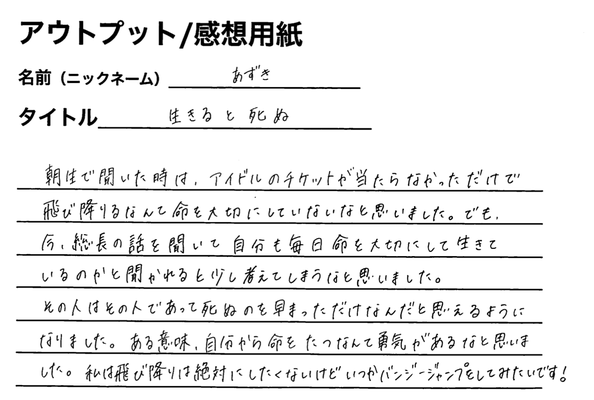 アウトプット/感想用紙
名前（ニックネーム） あずき
タイトル 生きると死ぬ
朝生で聞いた時は、アイドルのチケットが当たらなかっただけで
飛び降りるなんて命を大切にしていないなと思いました。でも、
今、総長の話を聞いて自分も毎日命を大切にして生きて
いるのかと聞かれると少し考えてしまうなと思いました。
その人はその人であって死ぬのを早まっただけなんだと思えるように
なりました。ある意味、自分から命をたつなんて勇気があるなと思いま
した。私は飛び降りは絶対にしたくないけどいつかバンジージャンプをしてみたいです!